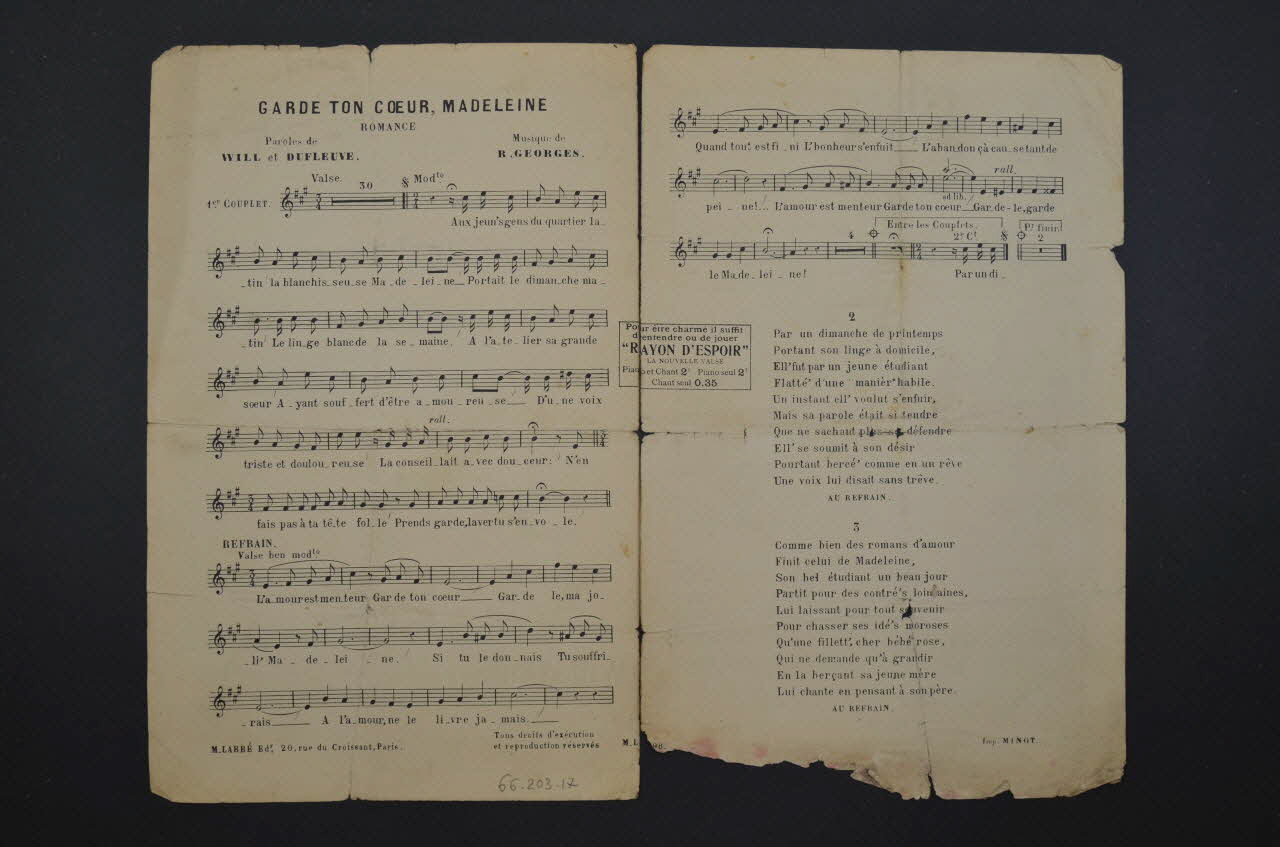 GARDE TON CŒUR, MADELEINE
ROMANCE
Paroles de
WILL et DUFLEUVE.
Musique de
R. GEORGES.
Valse.
30
Mod.to
1er COUPLET.
Aux jeun's gens du quartier la_
_tin la blanchis_seu_se Ma_de_lei_ne_ Portait le diman_che ma_
_tin Le lin_ge blanc de la se_maine. A l'a_te_lier sa grande
sœur A_yant souf_fert d'être a_mou_reu_se_ D'u_ne voix
rall.
triste et doulou_reu_se La conseil_lait a_vec dou_ceur: N'en
fais pas à ta tê_te fol_le Prends garde, la vertu s'en_vo_le.
REFRAIN.
Valse ben mod.to
L'a_mour est men_teur Gar_de ton cœur_ Gar_de le, ma jo_
_li' Ma_de_lei_ne. Si tu le don_nais Tu souffri_
_rais_ A l'a_mour, ne le li_vre ja_mais._
M. LABBÉ Edr. 20, rue du Croissant, Paris.
Tous droits d'exécution
et reproduction réservés
66.203.17
Quand tout est fi_ni L'bonheur s'enfuit_ L'aban_don çà cau_se tant de
rall.
ad lib.
pei_ne!... L'amour est menteur Garde ton cœur_ Gar_de-le, garde
Entre les Couplets.
Pr finir.
4
2e Ct
2
le Ma_de_lei_ne!
Par un di_
Pour être charmé il suffit
d'entendre ou de jouer
"RAYON D'ESPOIR"
LA NOUVELLE VALSE
Piano et Chant 2f Piano seul 2f
Chant seul 0.35
2
Par un dimanche de printemps
Portant son linge à domicile,
Ell' fut par un jeune étudiant
Flatté' d'une manièr' habile.
Un instant ell' voulut s'enfuir,
Mais sa parole était si tendre
Que ne sachant plus se défendre
Ell' se soumit à son désir
Pourtant bercé' comme en un rêve
Une voix lui disait sans trêve.
AU REFRAIN.
3
Comme bien des romans d'amour
Finit celui de Madeleine,
Son bel étudiant un beau jour
Partit pour des contré's lointaines,
Lui laissant pour tout souvenir
Pour chasser ses idé's moroses
Qu'une fillett', cher bébé rose,
Qui ne demande qu'à grandir
En la berçant sa jeune mère
Lui chante en pensant à son père.
AU REFRAIN.
Imp. MINOT.